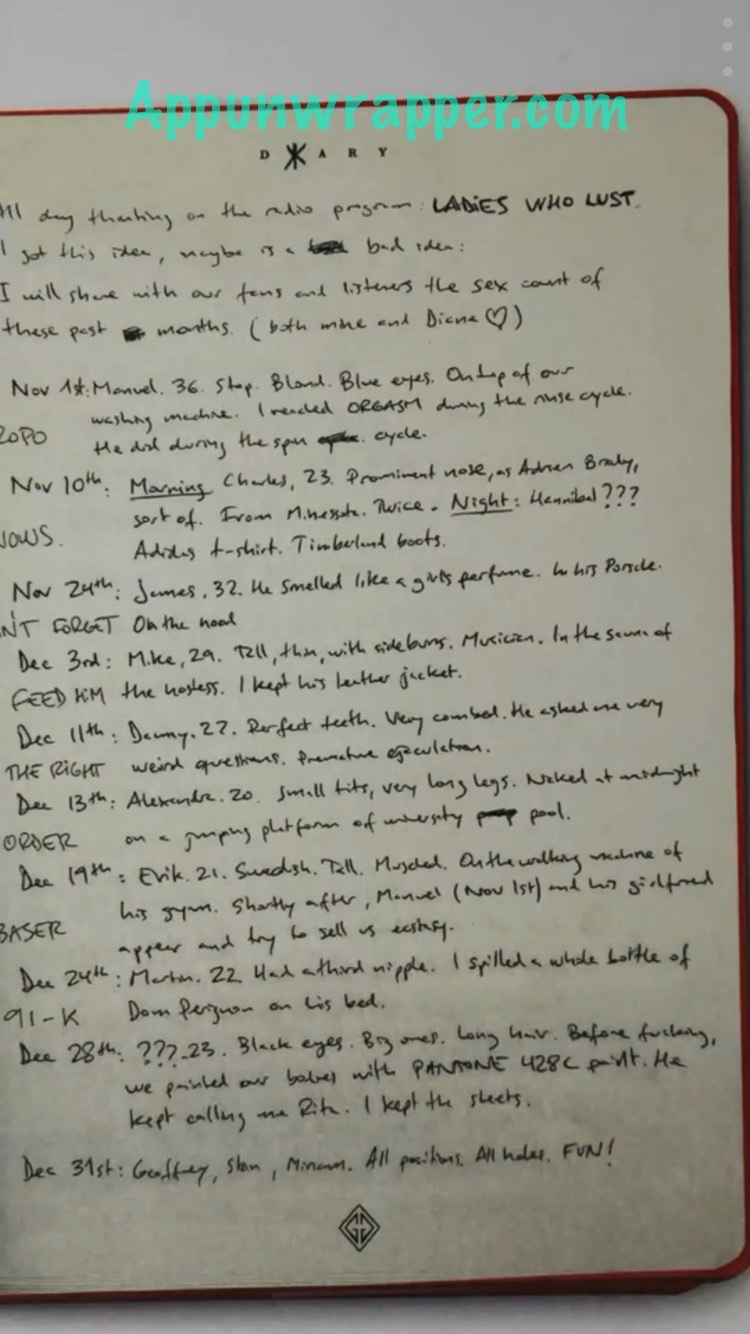 Appunwrapper.com
DIARY
All day thinking on the radio program: LADIES WHO LUST.
I got this idea, maybe is a bad idea:
I will share with our fans and listeners the sex count of
these past months. (both mine and Diana ♡)
Nov 1st: Manuel. 36. Stop. Bland. Blue eyes. On top of our
washing machine. I reached ORGASM during the rinse cycle.
ROPO He did during the spin cycle.
Nov 10th: Morning Charles, 23. Prominent nose, as Adrien Brody,
sort of. From Minessota. Twice. Night: Hannibal???
NOWS. Adidas t-shirt. Timberland boots.
Nov 24th: James, 32. He smelled like a girls perfume. In his Porsche.
N'T FORGET On the hood
Dec 3rd: Mike, 29. Tall, thin, with sideburns. Musician. In the sauna of
FEED HIM the hostess. I kept his leather jacket.
Dec 11th: Danny. 27. Perfect teeth. Very combed. He asked me very
THE RIGHT weird questions. Premature ejaculation.
Dec 13th: Alexandra. 20. Small tits, very long legs. Naked at midnight
ORDER on a jumping platform of university pool.
Dec 19th: Erik. 21. Swedish. Tall. Muscled. On the walking machine of
his gym. Shortly after, Manuel (Nov 1st) and his girlfriend
BASER appear and try to sell us ecstasy.
Dec 24th: Martin. 22. Had a third nipple. I spilled a whole bottle of
91-K Dom Perignon on his bed.
Dec 28th: ???. 23. Black eyes. Big ones. Long hair. Before fucking,
we painted our bodies with PANTONE 428C paint. He
kept calling me Rita. I kept the sheets.
Dec 31st: Geoffrey, Stan, Miriam. All positions. All holes. FUN!